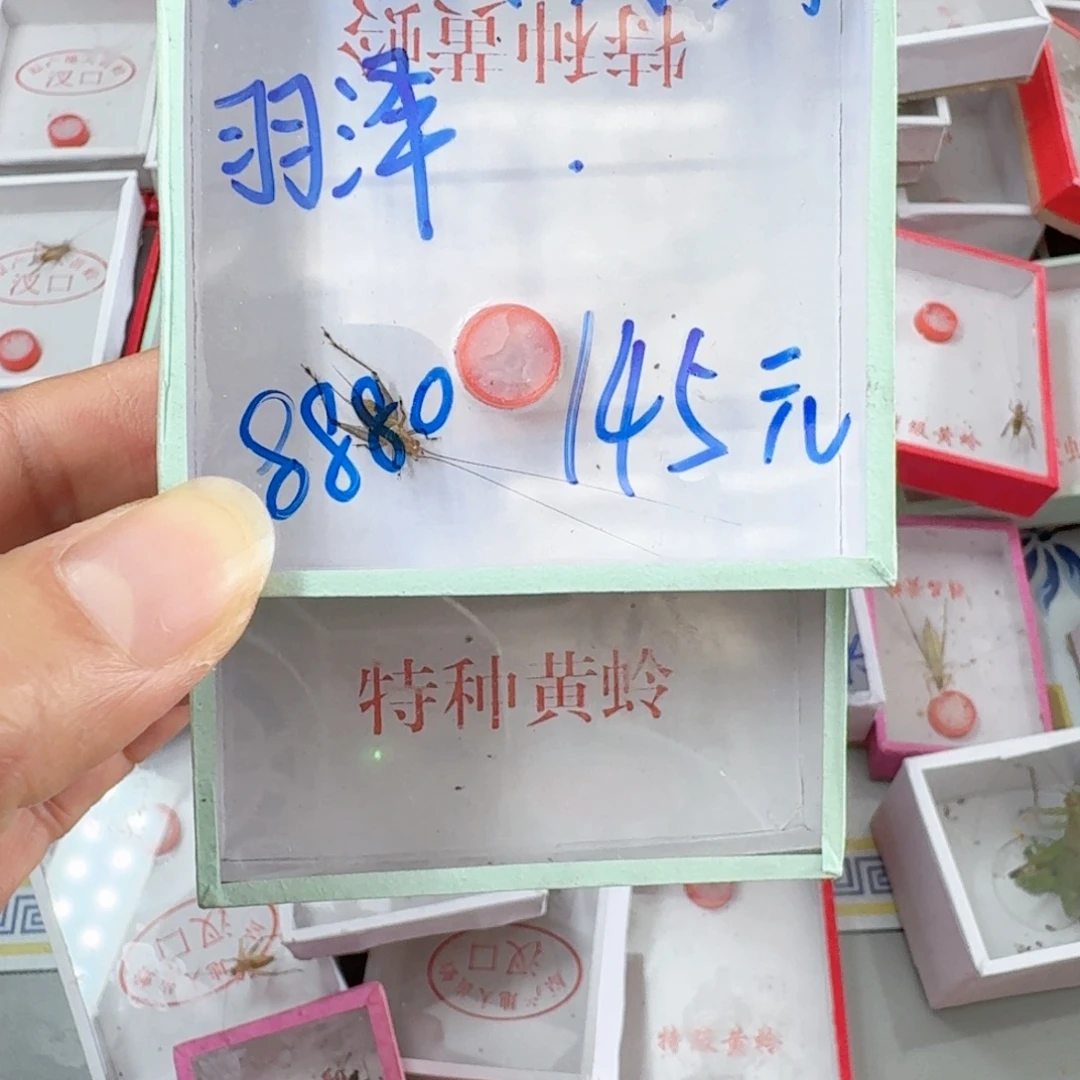 特种黄蛉
羽泽
8880 145元
特种黄蛉
汉口
汉口
特级黄蛉
汉口
汉口
特级黄蛉